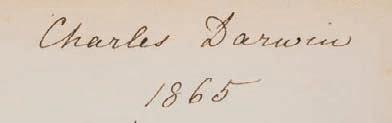 Charles Darwin
1865